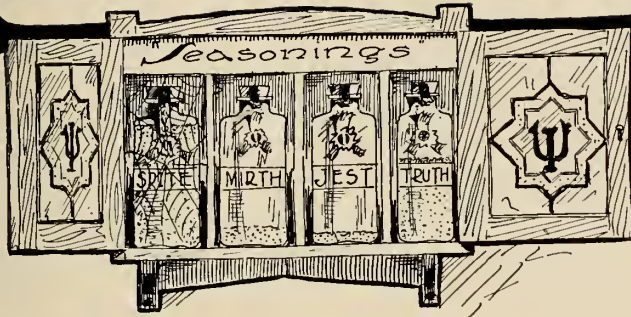 Seasonings
SPITE MIRTH JEST TRUTH
Ψ Ψ